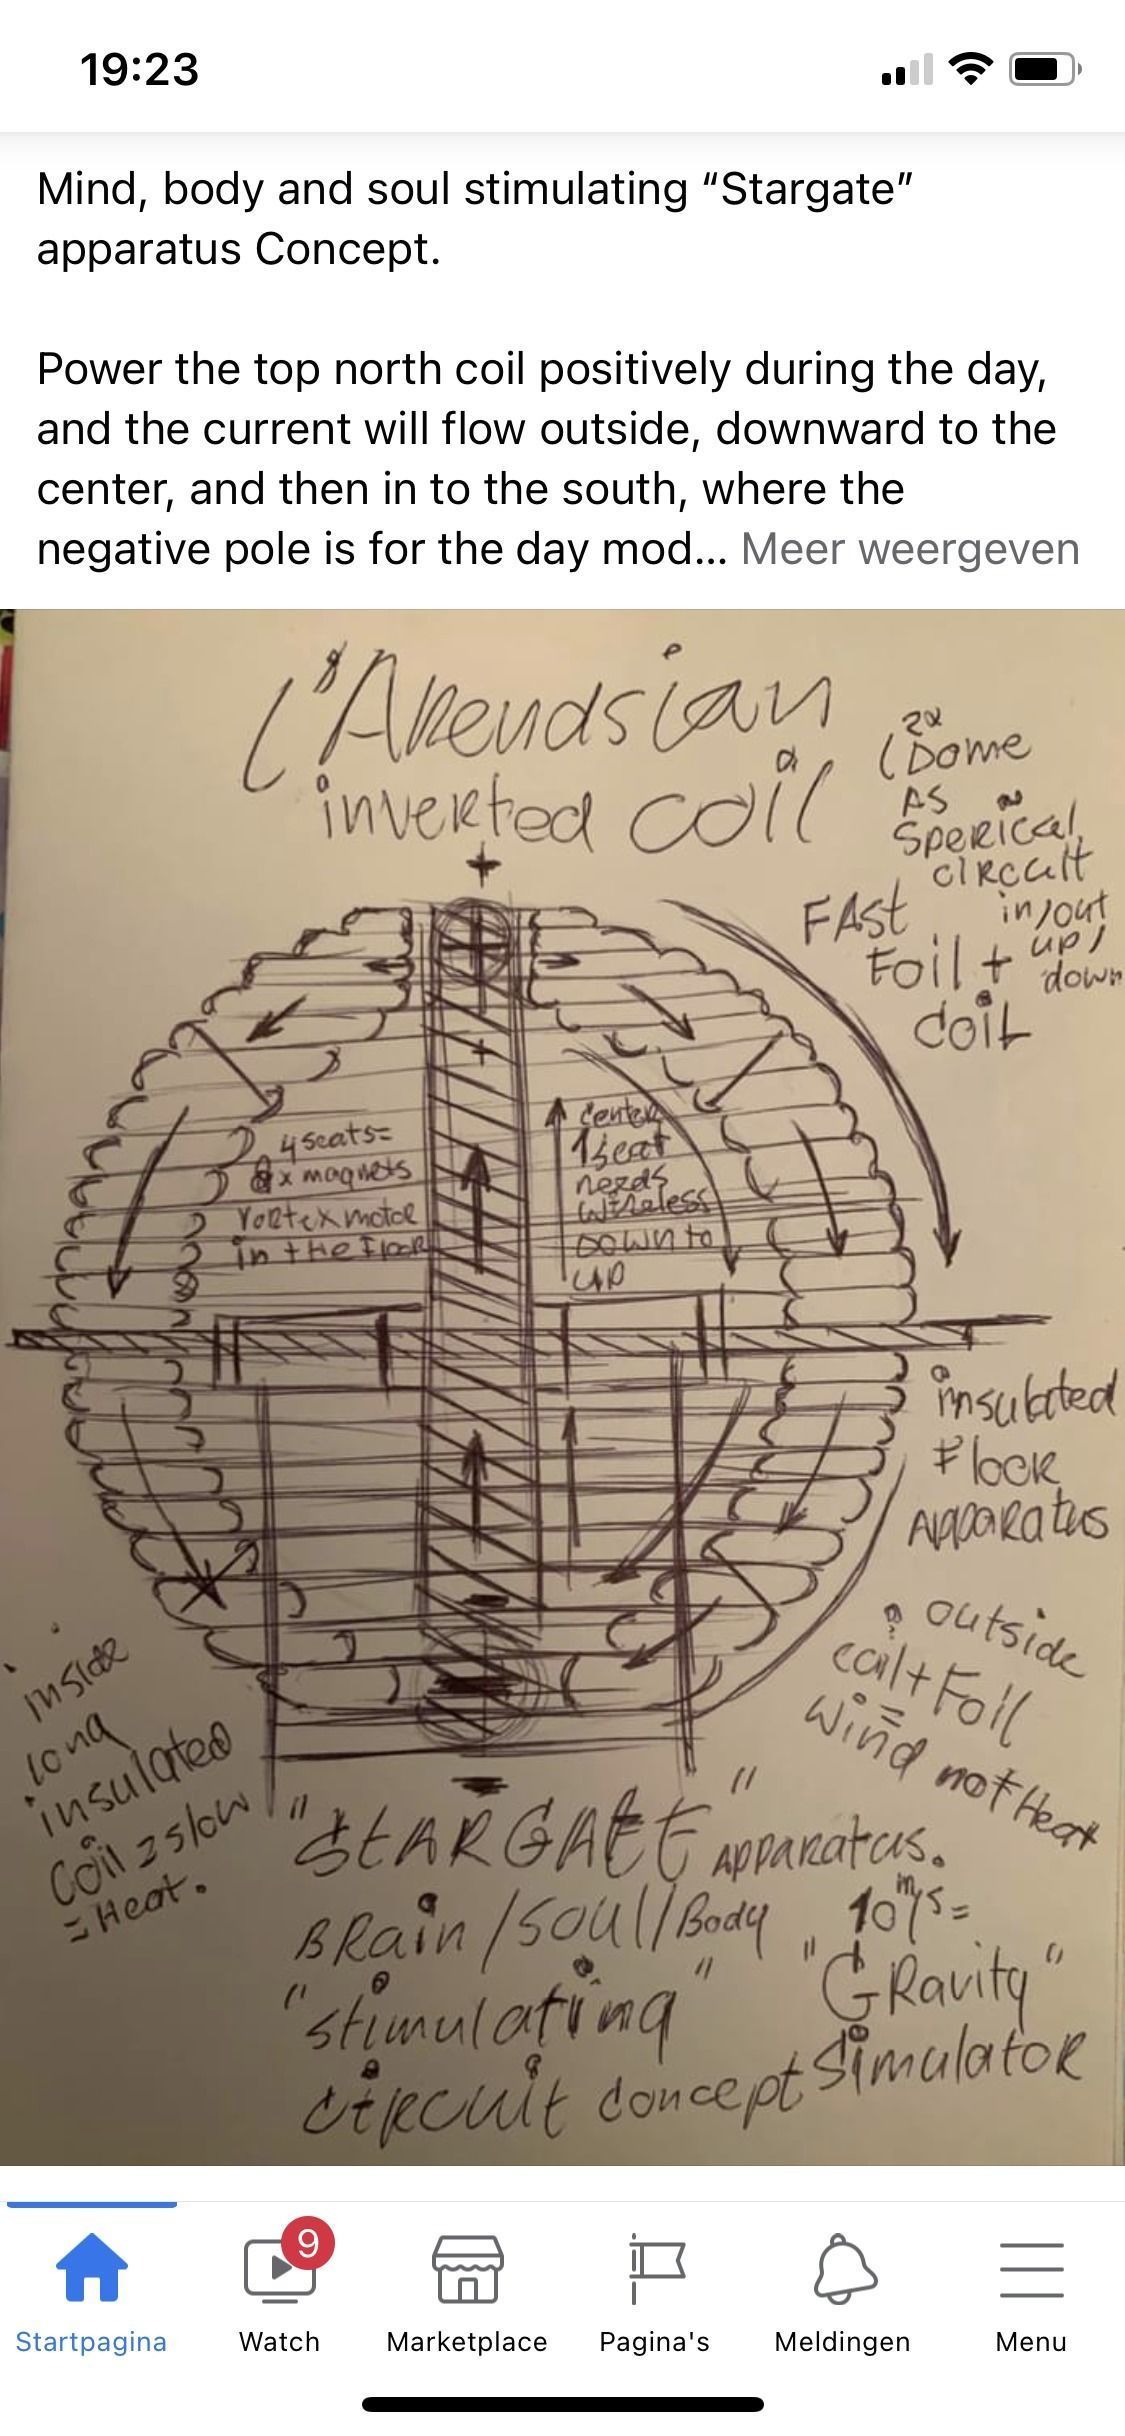 19:23
Mind, body and soul stimulating “Stargate”
apparatus Concept.
Power the top north coil positively during the day,
and the current will flow outside, downward to the
center, and then in to the south, where the
negative pole is for the day mod... Meer weergeven
inverted coil
+
2x
(Dome
AS
Sperical
circuit
in/out
up/
down
FASt
Foil +
coil
+
4 seats=
8x magnets
Vortex motor
in the Floor
center
1 seat
needs
wireless
DOWN to
UP
insulated
Floor
Apparatus
inside
long
insulated
coil = slow
= Heat.
outside
coil + Foil
= wind not Heat
"StARGAtE" Apparatus.
BRain/Soul/Body
"stimulating"
circuit concept
10 m/s =
"GRavity"
Simulator
9
Startpagina
Watch
Marketplace
Pagina's
Meldingen
Menu